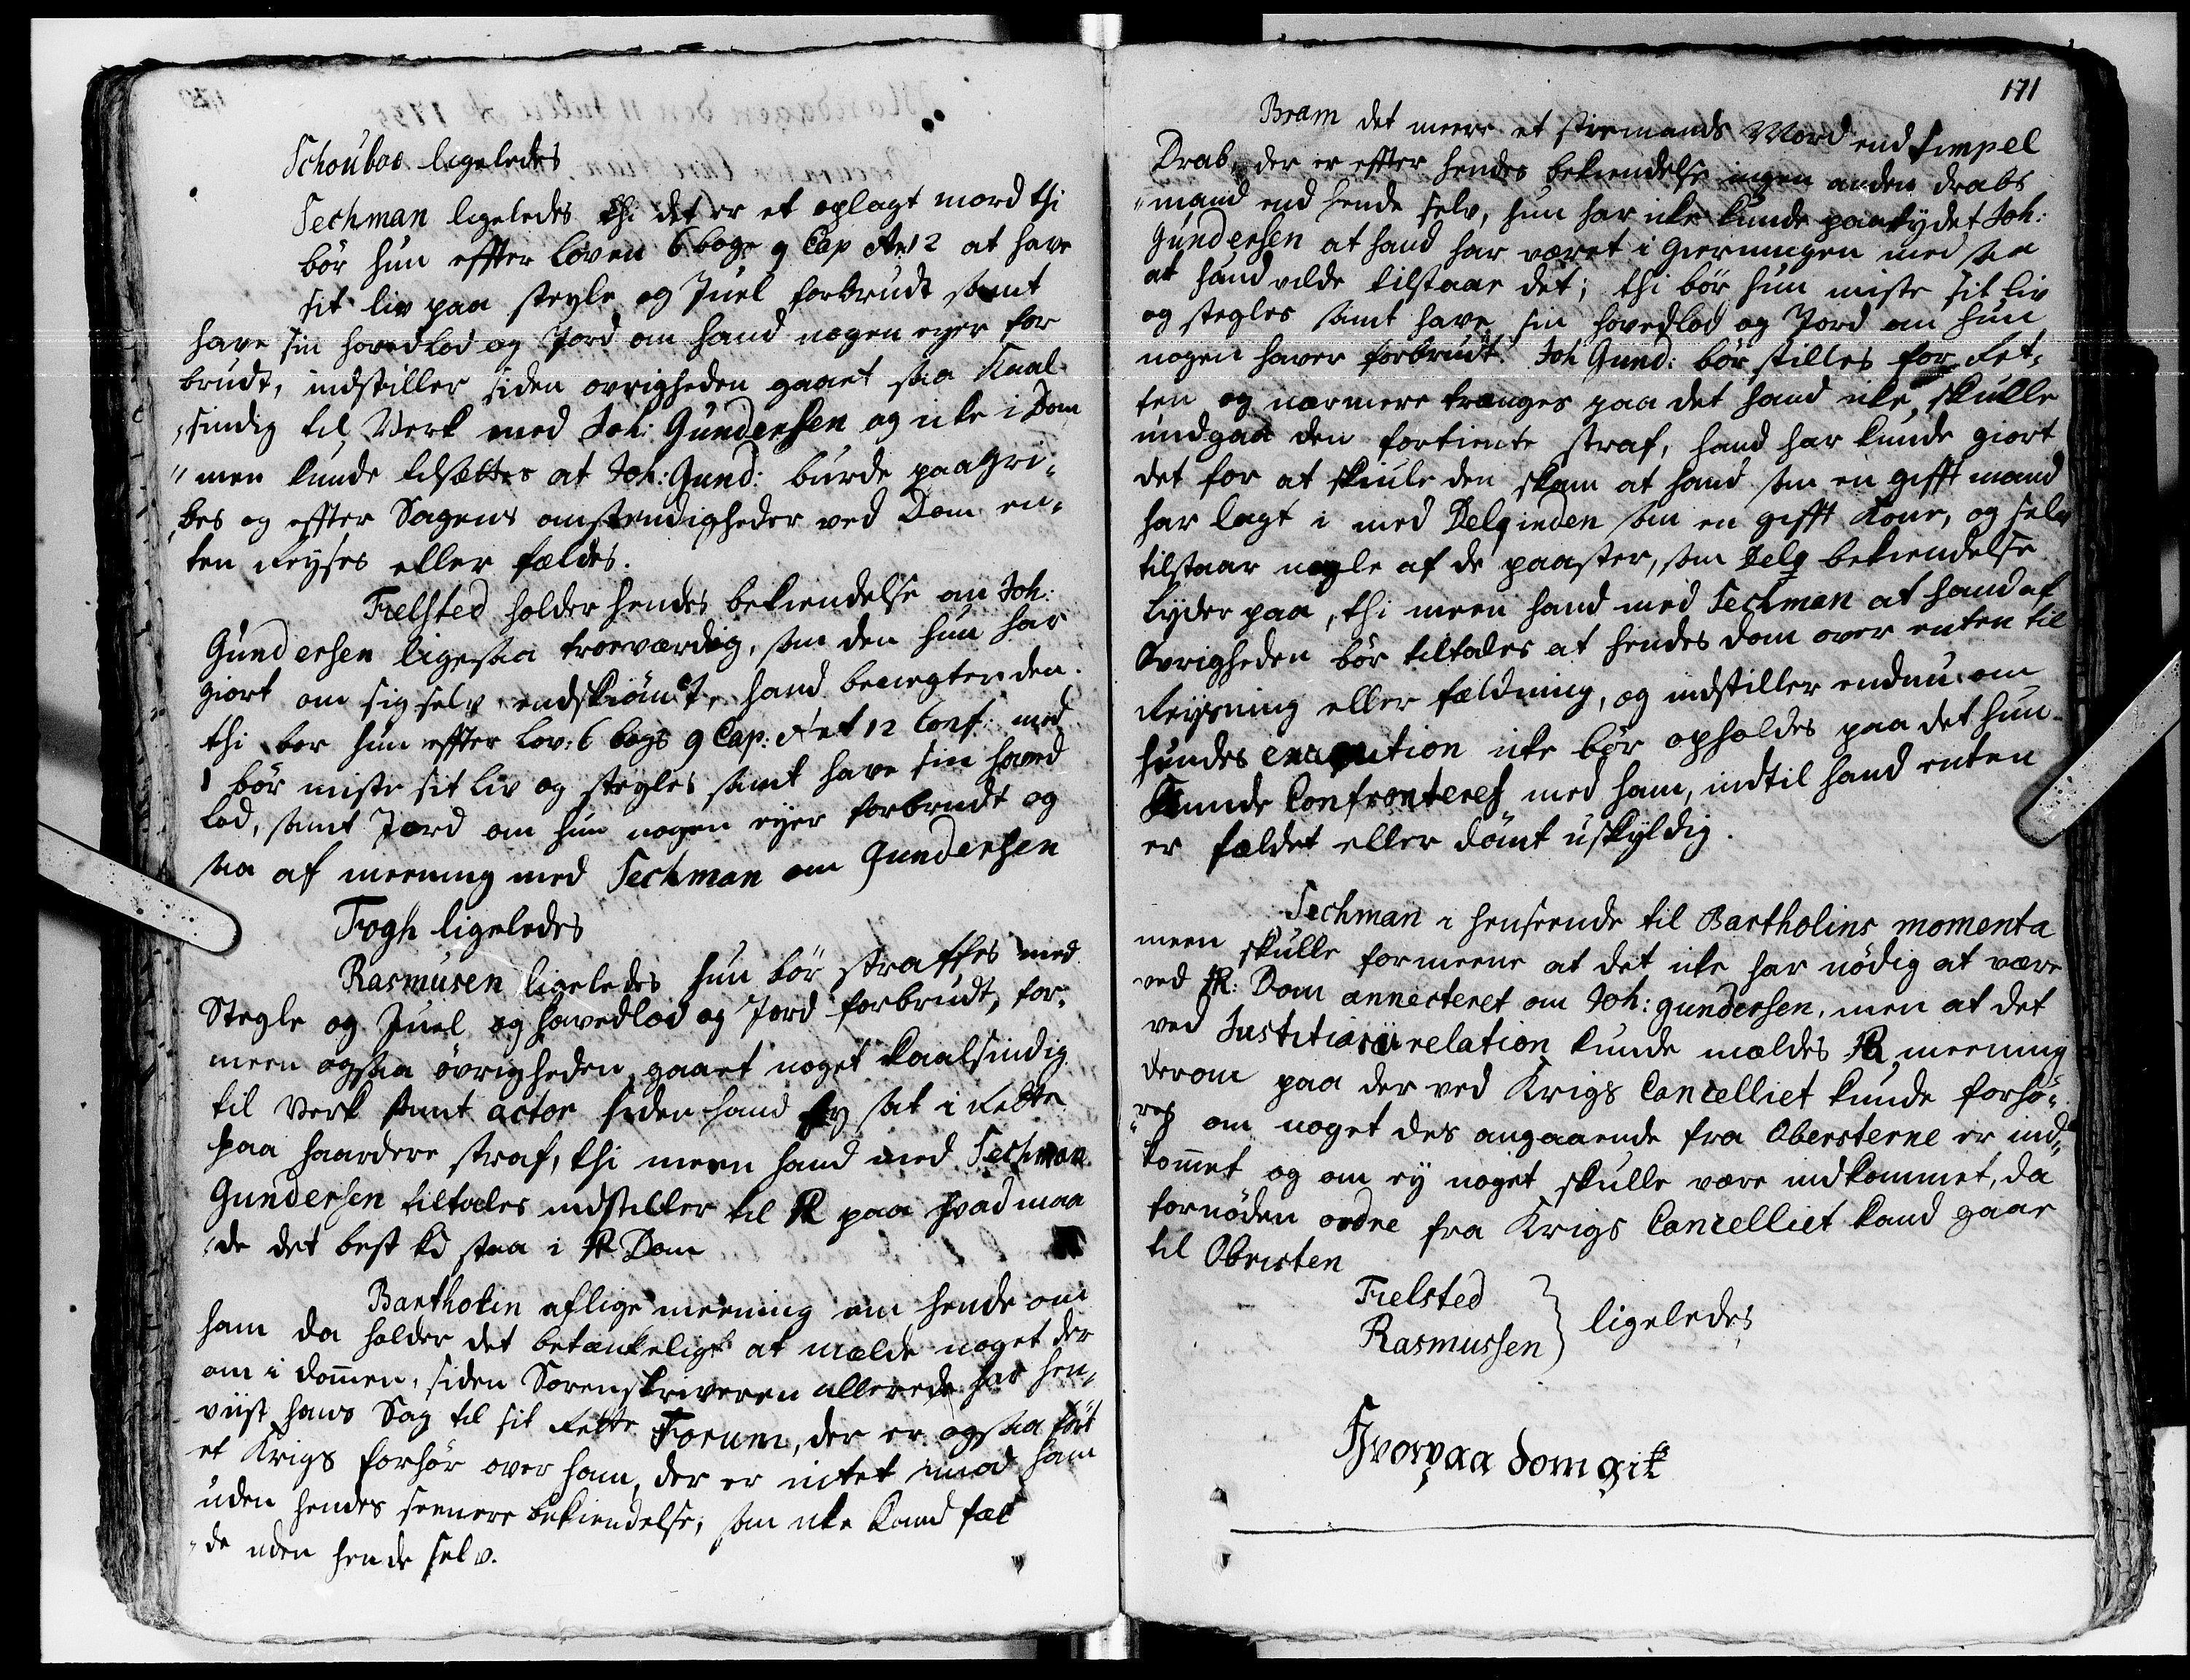 Schouboe ligeledes
Techman ligeledes thi det er et oplagt mord thi
bör hun effter loven 6 bogs 9 Cap Art 12 at have
sit liv paa stegle og Juel forbrudt samt
have sin hovedlod og Jord om hand nogen eyer for
brudt, indstiller siden øvrigheden gaaet saa Kaal
sindig til Verk med Joh: Gundersen og icke i Dom
men kunde tilsættes at Joh: Gund: burde paagri,
bes og effter Sagens omstendigheder ved Dom en,
ten freyses eller fældes.
Fielsted holder hendes bekiendelse om Joh:
Gundersen ligesaa troeværdig, som den hun har
giort om sig selv, endskiönt, hand benegter den.
thi bör hun effter Lov: 6 bogs 9 Cap: Art 12 Conf: med
1 bör miste sit liv og stegles samt have sin hoved
lod, samt Jord om hun nogen eyer forbrudt og
saa af meening med Techman om Gundersen
Fogh ligeledes
Rasmusen ligeledes hun bör straffes med
Stegle og Juel og hovedlod og Jord forbrudt, for,
meen ogsaa övrigheden gaaet noget kaalsindig
til Verk samt actor siden hand ey sat i rette
paa haardere straf, thi meen hand med Techman
Gundersen tiltales indstiller til HR paa hvad maa
de det best kd staa i HR Dom
Bartholin af lige meening om hende om
ham da holder det betænkeligt at melde noget der
om i dommen, siden Sorenskriveren allerede har hen,
viist hans Sag til sit rette Forum, der er ogsaa fört
et Krigs forhör over ham, der er intet imod ham
uden hendes seenere bekiendelse, som icke kand fæl
de uden hende selv.
171
Bram det meere et stiemands Mord end Simpel
Drab, der er effter hendes bekiendelse ingen anden drabs
mand end hende selv, hun har icke kunde paaskydet Joh:
Gundersen at hand har været i Gierningen med saa
at hand vilde tilstaae det; thi bör hun miste sit liv
og stegles samt have sin hovedlod og Jord om hun
nogen haver forbrudt. Joh Gund: bör stilles for Ret,
ten og nærmere trænges paa det hand icke skulle
undgaa den fortiente straf, hand har kunde giort
det for at skiule den skam at hand som en gifft mand
har lagt i med Delqvinden som en gifft Kone, og selv
tilstaar nogle af de paaster, som Delq bekiendelse
lyder paa, thi meen hand med Techman at hand af
Övrigheden bör tiltales at hendes dom over enten til
freysning eller fældning, og indstiller endnu om
hendes execution icke bör opholdes paa det hun
kunde Confronteres med ham, indtil hand enten
er fældet eller dömt uskyldig.
Techman i henseende til Bartholins momenta
meen skulle formeene at det icke har nödig at være
ved HR: Dom annecteret om Joh: gundersen, men at det
ved Justitiarii relation kunde mældes HR meening
derom paa der ved Krigs Cancelliet kunde forhö,
res om noget des angaaende fra Obersterne er ind,
kommet og om ey noget skulle være indkommet, da
fornöden ordre fra Krigs Cancelliet kand gaae
til Obersten
Fielsted
Rasmussen } ligeledes
Hvorpaa dom gik